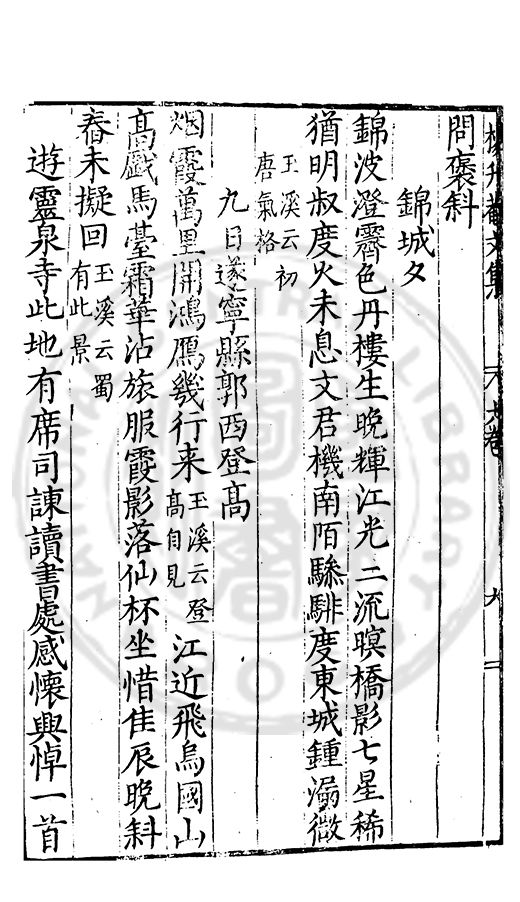 問褒斜
錦城夕
錦波澄霽色丹樓生晚輝江光二流暝橋影七星稀
猶明叔度火未息文君機南陌驂騑度東城鍾漏微
玉溪云初
唐氣格
九日遂寧縣郭西登高
烟霞萬里開鴻鴈幾行来玉溪云登高自見江近飛烏國山
高戲馬臺霜華沾旅服霞影落仙杯坐惜佳辰晚斜
舂未擬回玉溪云蜀有此景
遊靈泉寺此地有席司諫讀書處感懷興悼一首